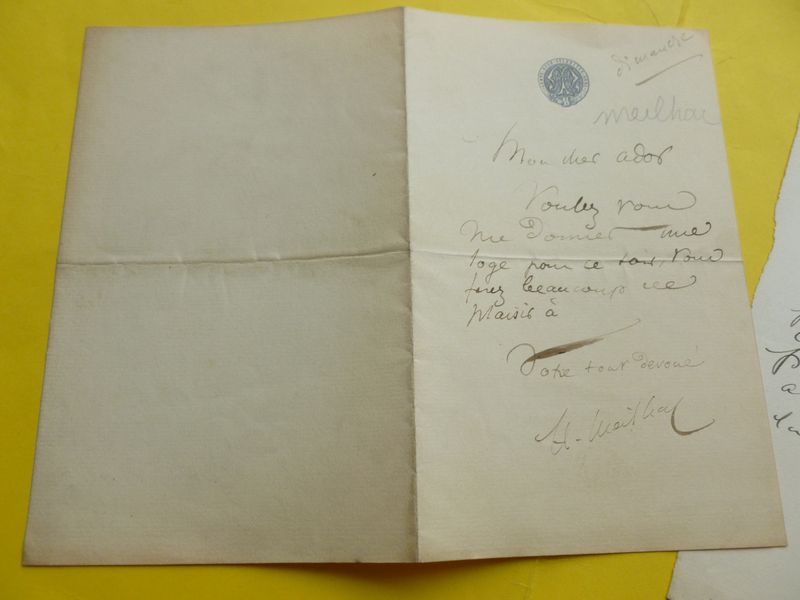 dimanche
meilhac
Mon cher ador
Voulez vous
me donner une
loge pour ce soir, vous
ferez beaucoup de
plaisir à
Votre tout devoué
H. Meilhac